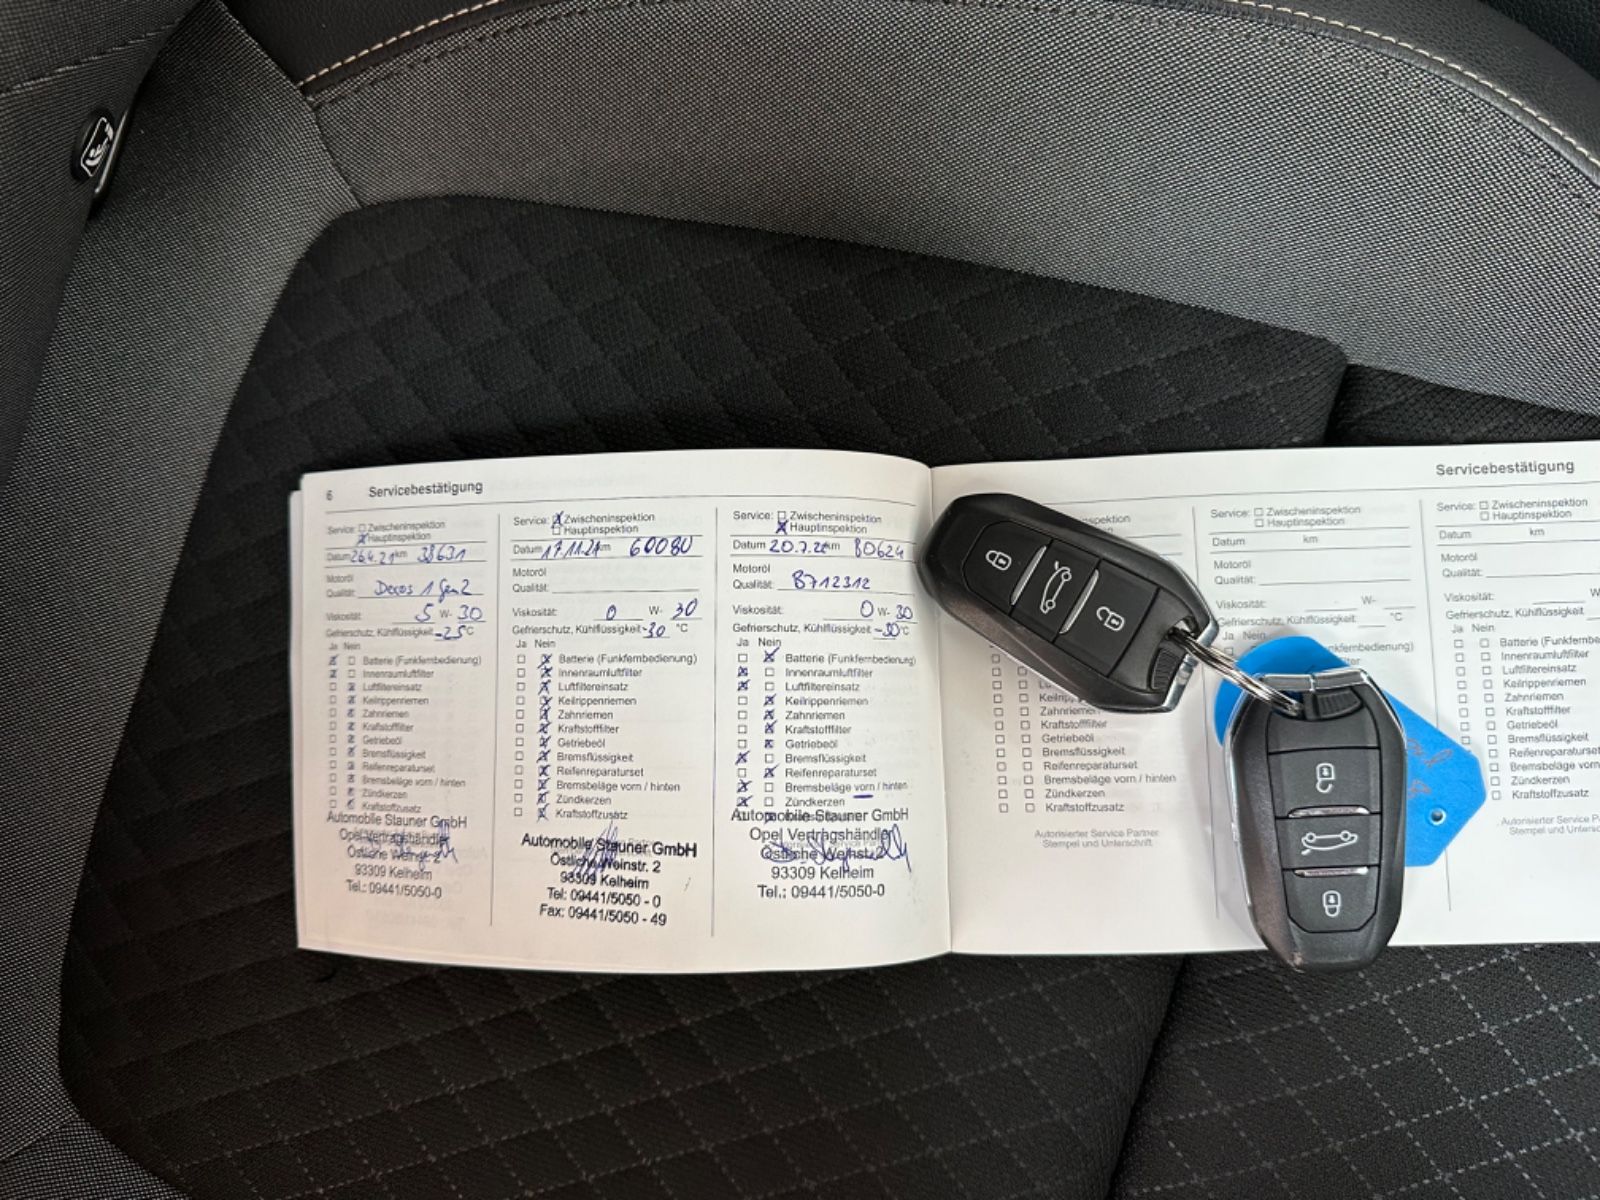 6 Servicebestätigung
Service: Zwischeninspektion
Hauptinspektion
Datum 26.4.21 km 38631
Motoröl
Qualität: Dexos 1 Gen 2
Viskosität: 5 W- 30
Gefrierschutz, Kühlflüssigkeit -25 °C
Ja Nein
Batterie (Funkfernbedienung)
Innenraumluftfilter
Luftfiltereinsatz
Keilrippenriemen
Zahnriemen
Kraftstofffilter
Getriebeöl
Bremsflüssigkeit
Reifenreparaturset
Bremsbeläge vorn / hinten
Zündkerzen
Kraftstoffzusatz
Automobile Stauner GmbH
Opel Vertragshändler
Östliche Weinstr. 2
93309 Kelheim
Tel.: 09441/5050-0
Service: Zwischeninspektion
Hauptinspektion
Datum 17.11.21 km 60080
Motoröl
Qualität:
Viskosität: 0 W- 30
Gefrierschutz, Kühlflüssigkeit -30 °C
Ja Nein
Batterie (Funkfernbedienung)
Innenraumluftfilter
Luftfiltereinsatz
Keilrippenriemen
Zahnriemen
Kraftstofffilter
Getriebeöl
Bremsflüssigkeit
Reifenreparaturset
Bremsbeläge vorn / hinten
Zündkerzen
Kraftstoffzusatz
Automobile Stauner GmbH
Östliche Weinstr. 2
93309 Kelheim
Tel: 09441/5050 - 0
Fax: 09441/5050 - 49
Service: Zwischeninspektion
Hauptinspektion
Datum 20.7.22 km 80624
Motoröl
Qualität: B712312
Viskosität: 0 W- 30
Gefrierschutz, Kühlflüssigkeit -30 °C
Ja Nein
Batterie (Funkfernbedienung)
Innenraumluftfilter
Luftfiltereinsatz
Keilrippenriemen
Zahnriemen
Kraftstofffilter
Getriebeöl
Bremsflüssigkeit
Reifenreparaturset
Bremsbeläge vorn / hinten
Zündkerzen
Automobile Stauner GmbH
Opel Vertragshändler
Östliche Weinstr. 2
93309 Kelheim
Tel.: 09441/5050-0
Servicebestätigung
Zahnriemen
Kraftstofffilter
Getriebeöl
Bremsflüssigkeit
Reifenreparaturset
Bremsbeläge vorn / hinten
Zündkerzen
Kraftstoffzusatz
Autorisierter Service Partner
Stempel und Unterschrift
Service: Zwischeninspektion
Hauptinspektion
Datum km
Motoröl
Qualität:
Viskosität: W-
Gefrierschutz, Kühlflüssigkeit °C
Ja Nein
Service: Zwischeninspektion
Hauptinspektion
Datum km
Motoröl
Qualität:
Viskosität: W
Gefrierschutz, Kühlflüssigkeit
Ja Nein
Batterie
Innenraumluftfilter
Luftfiltereinsatz
Keilrippenriemen
Zahnriemen
Kraftstofffilter
Getriebeöl
Bremsflüssigkeit
Reifenreparaturset
Bremsbeläge
Zündkerzen
Kraftstoffzusatz
Autorisierter Service
Stempel und